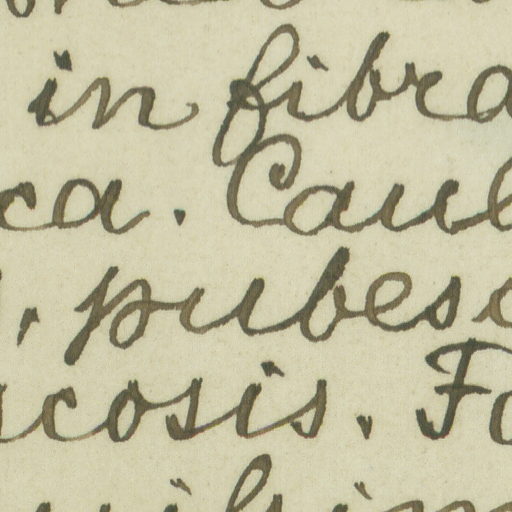 in fibra
ca. Caul
, pubesc
cosis. Fo